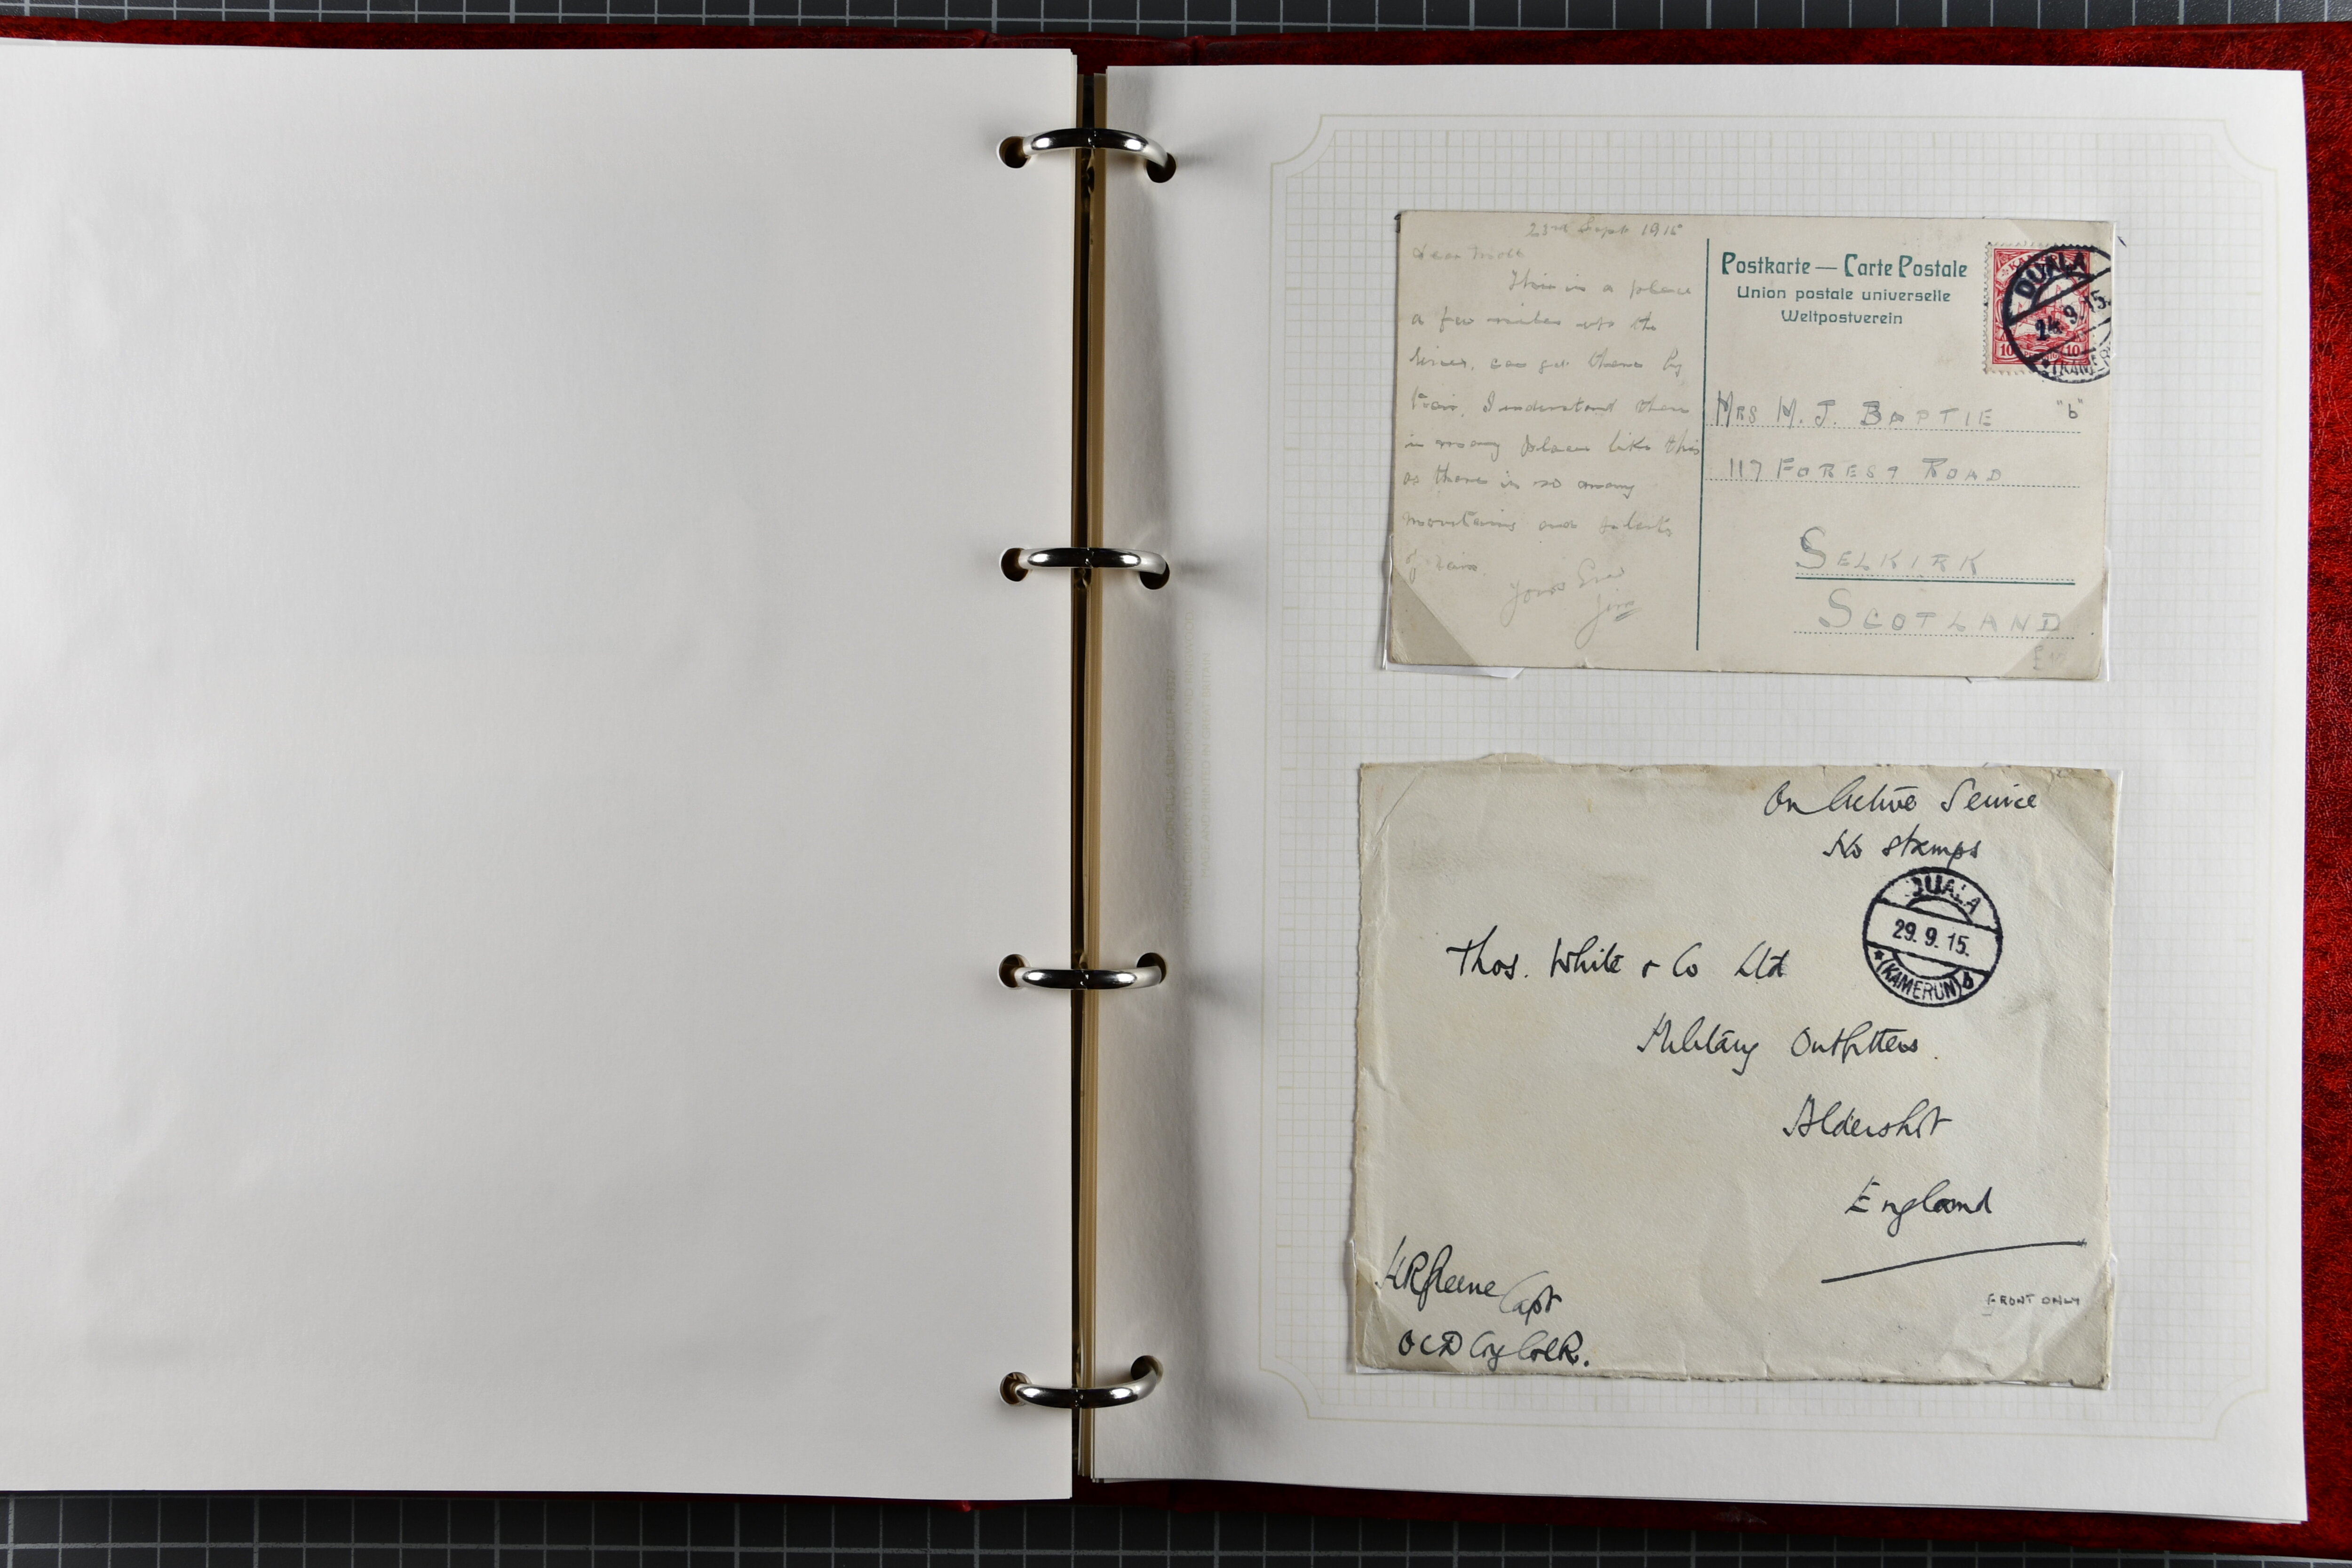 23rd Sept 1915
Dear Moll
This is a place
a few miles up the
River, can get there by
train, I understand there
is many places like this
as there is so many
mountains and
of rain.
Yours Ever
Jim
Postkarte — Carte Postale
Union postale universelle
Weltpostverein
DUALA
24.9.15.
(KAMER
10 10
MRS M. J. BAPTIE
"b"
117 FOREST ROAD
SELKIRK
SCOTLAND
On Active Service
No stamps
DUALA
29.9.15.
*(KAMERUN)b
Thos. White & Co Ltd
Military Outfitters.
Aldershot
England
HRGreene Capt
OC D Coy
FRONT ONLY